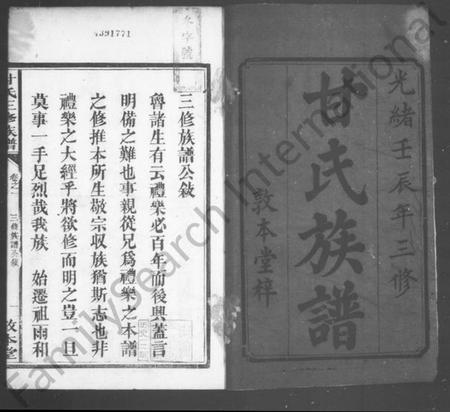 光緒壬辰年三修
甘氏族譜
敦本堂梓
4391771
三修族譜公敘
魯諸生有云禮樂必百年而後興蓋言
明備之難也事親從兄爲禮樂之本譜
之修推本所生敬宗收族猶斯志也非
禮樂之大經乎將欲修而明之豈一旦
莫事一手足烈哉我族 始遷祖雨和
甘氏三修族譜
卷之一
三修族譜公敘
敦本堂
FamilySearch International